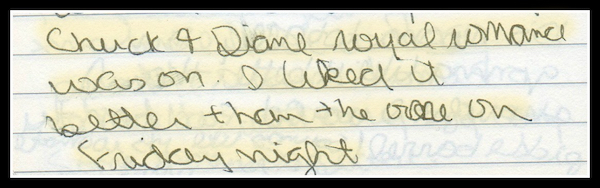 Chuck & Diane royal romance
was on. I liked it
better than the one on
Friday night